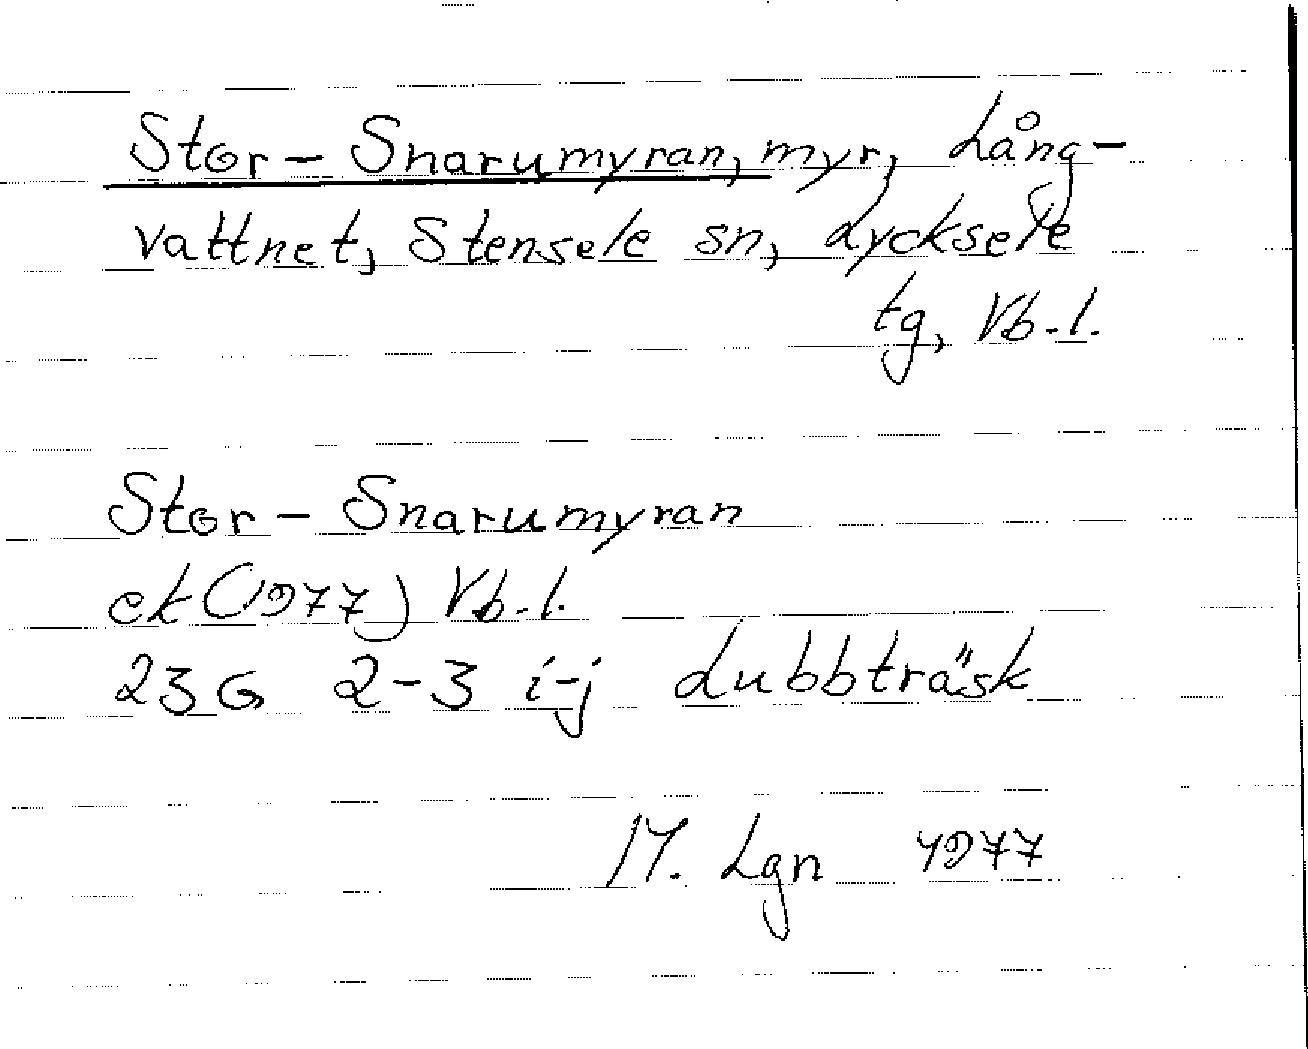 Stor-Snarumyran, myr, Lång-
vattnet, Stensele sn, Lycksele
tg, Vb.l.
Stor-Snarumyran
ek(1977) Vb.l.
23G 2-3 i-j Lubbträsk
M. Lgn 1977